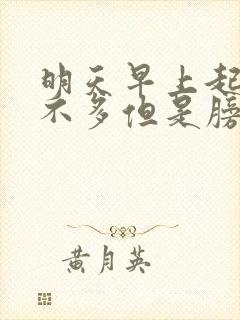 明天早上起
不多但是膀
黄月英